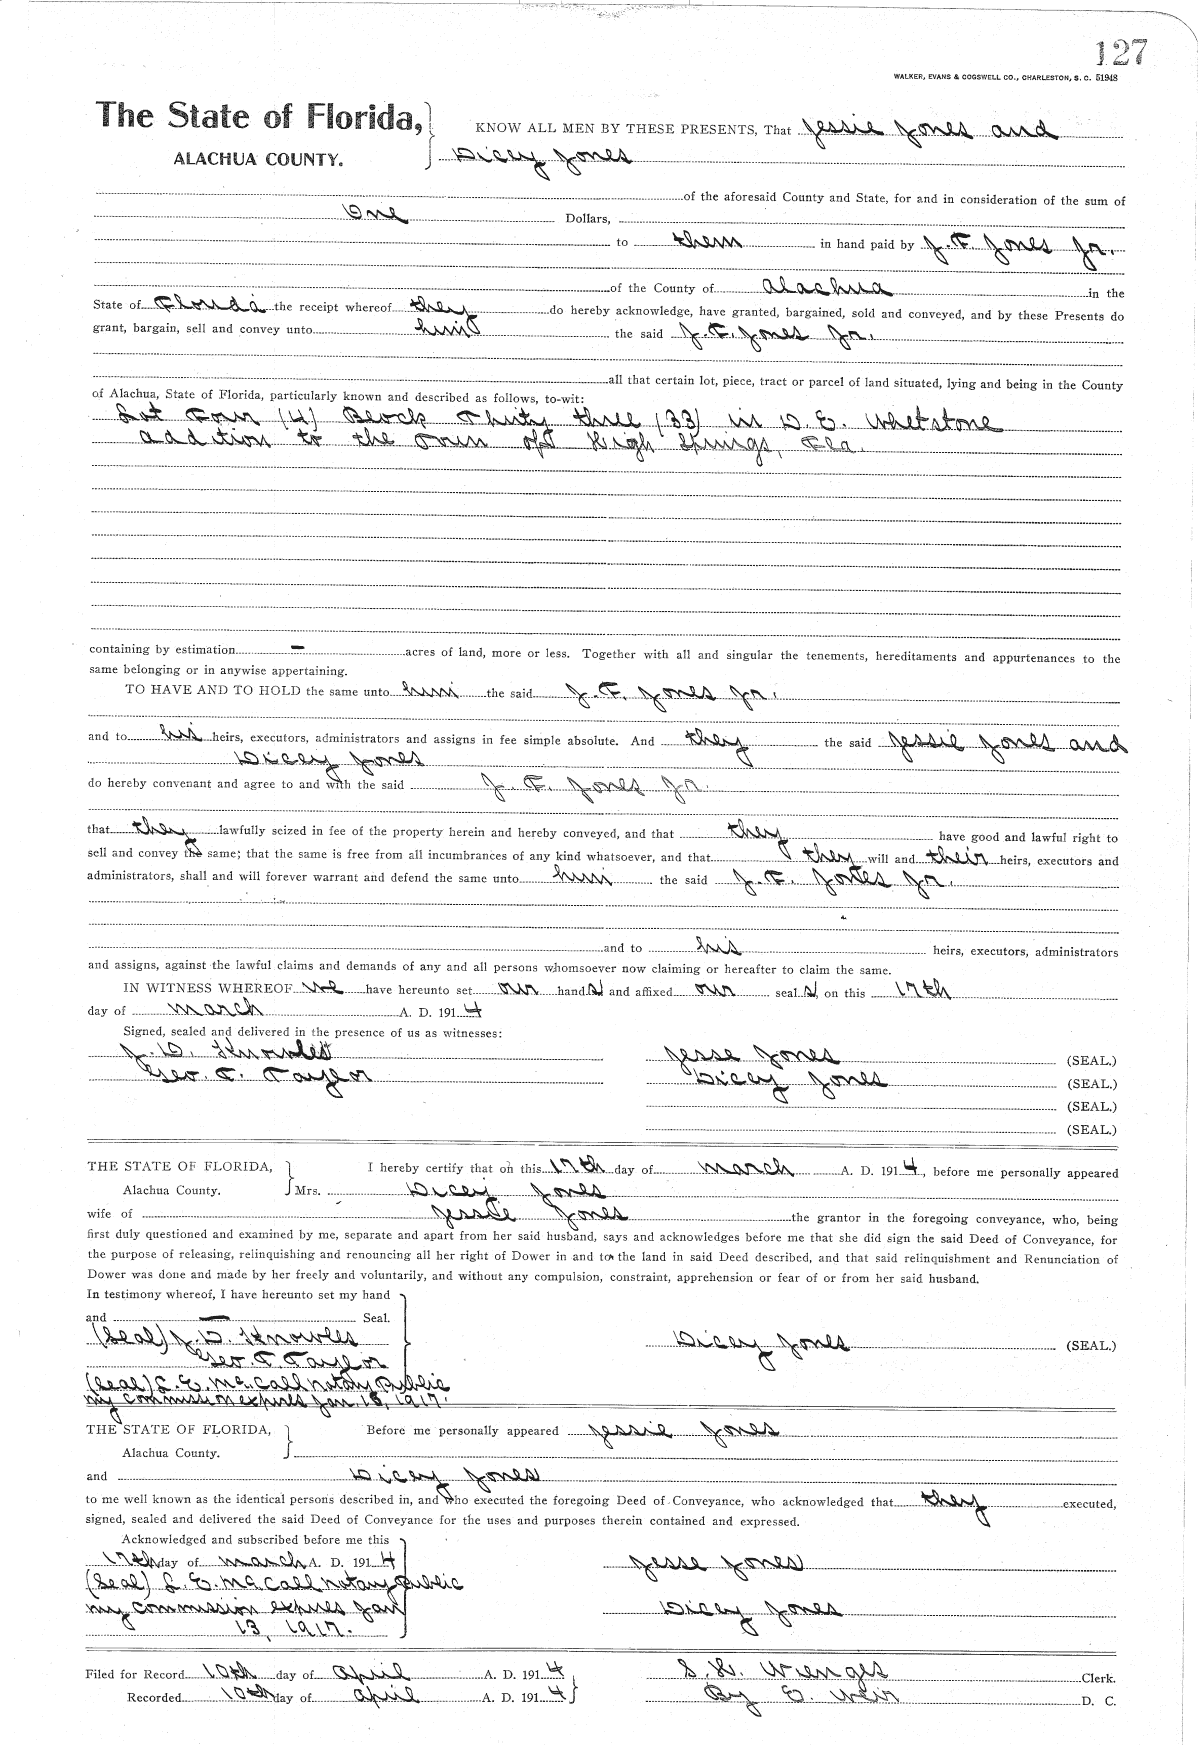 127
WALKER, EVANS & COGSWELL CO., CHARLESTON, S. C. 51948
The State of Florida, KNOW ALL MEN BY THESE PRESENTS, That Jessie Jones and
ALACHUA COUNTY. Dicey Jones
of the aforesaid County and State, for and in consideration of the sum of
One Dollars,
to them in hand paid by J. F. Jones Jr.
of the County of Alachua in the
State of Florida the receipt whereof they do hereby acknowledge, have granted, bargained, sold and conveyed, and by these Presents do
grant, bargain, sell and convey unto him the said J. F. Jones Jr.
all that certain lot, piece, tract or parcel of land situated, lying and being in the County
of Alachua, State of Florida, particularly known and described as follows, to-wit:
Lot Four (4) Block Thirty three (33) in D. E. Whetstone
addition to the Town of High Springs, Fla.
containing by estimation - acres of land, more or less. Together with all and singular the tenements, hereditaments and appurtenances to the
same belonging or in anywise appertaining.
TO HAVE AND TO HOLD the same unto him the said J. F. Jones Jr.
and to his heirs, executors, administrators and assigns in fee simple absolute. And they the said Jessie Jones and
Dicey Jones
do hereby convenant and agree to and with the said J. F. Jones Jr.
that they lawfully seized in fee of the property herein and hereby conveyed, and that they have good and lawful right to
sell and convey the same; that the same is free from all incumbrances of any kind whatsoever, and that they will and their heirs, executors and
administrators, shall and will forever warrant and defend the same unto him the said J. F. Jones Jr.
and to his heirs, executors, administrators
and assigns, against the lawful claims and demands of any and all persons whomsoever now claiming or hereafter to claim the same.
IN WITNESS WHEREOF we have hereunto set our hands and affixed our seals, on this 17th
day of March A. D. 1914
Signed, sealed and delivered in the presence of us as witnesses:
J. D. Knowles Jesse Jones (SEAL.)
Geo. T. Taylor Dicey Jones (SEAL.)
(SEAL.)
(SEAL.)
THE STATE OF FLORIDA, I hereby certify that on this 17th day of March A. D. 1914, before me personally appeared
Alachua County. Mrs. Dicey Jones
wife of Jessie Jones the grantor in the foregoing conveyance, who, being
first duly questioned and examined by me, separate and apart from her said husband, says and acknowledges before me that she did sign the said Deed of Conveyance, for
the purpose of releasing, relinquishing and renouncing all her right of Dower in and to the land in said Deed described, and that said relinquishment and Renunciation of
Dower was done and made by her freely and voluntarily, and without any compulsion, constraint, apprehension or fear of or from her said husband.
In testimony whereof, I have hereunto set my hand
and - Seal.
(Seal) J. D. Knowles Dicey Jones (SEAL.)
Geo. T. Taylor
(Seal) L. E. McCall Notary Public
my commission expires Jan. 13, 1917.
THE STATE OF FLORIDA, Before me personally appeared Jessie Jones
Alachua County.
and Dicey Jones
to me well known as the identical persons described in, and who executed the foregoing Deed of Conveyance, who acknowledged that they executed,
signed, sealed and delivered the said Deed of Conveyance for the uses and purposes therein contained and expressed.
Acknowledged and subscribed before me this
17th day of March A. D. 1914 Jesse Jones
(Seal) L. E. McCall Notary Public
my commission expires Jan Dicey Jones
13, 1917.
Filed for Record 10th day of April A. D. 1914 S. H. Wienges Clerk.
Recorded 10th day of April A. D. 1914 By E. Weir D. C.